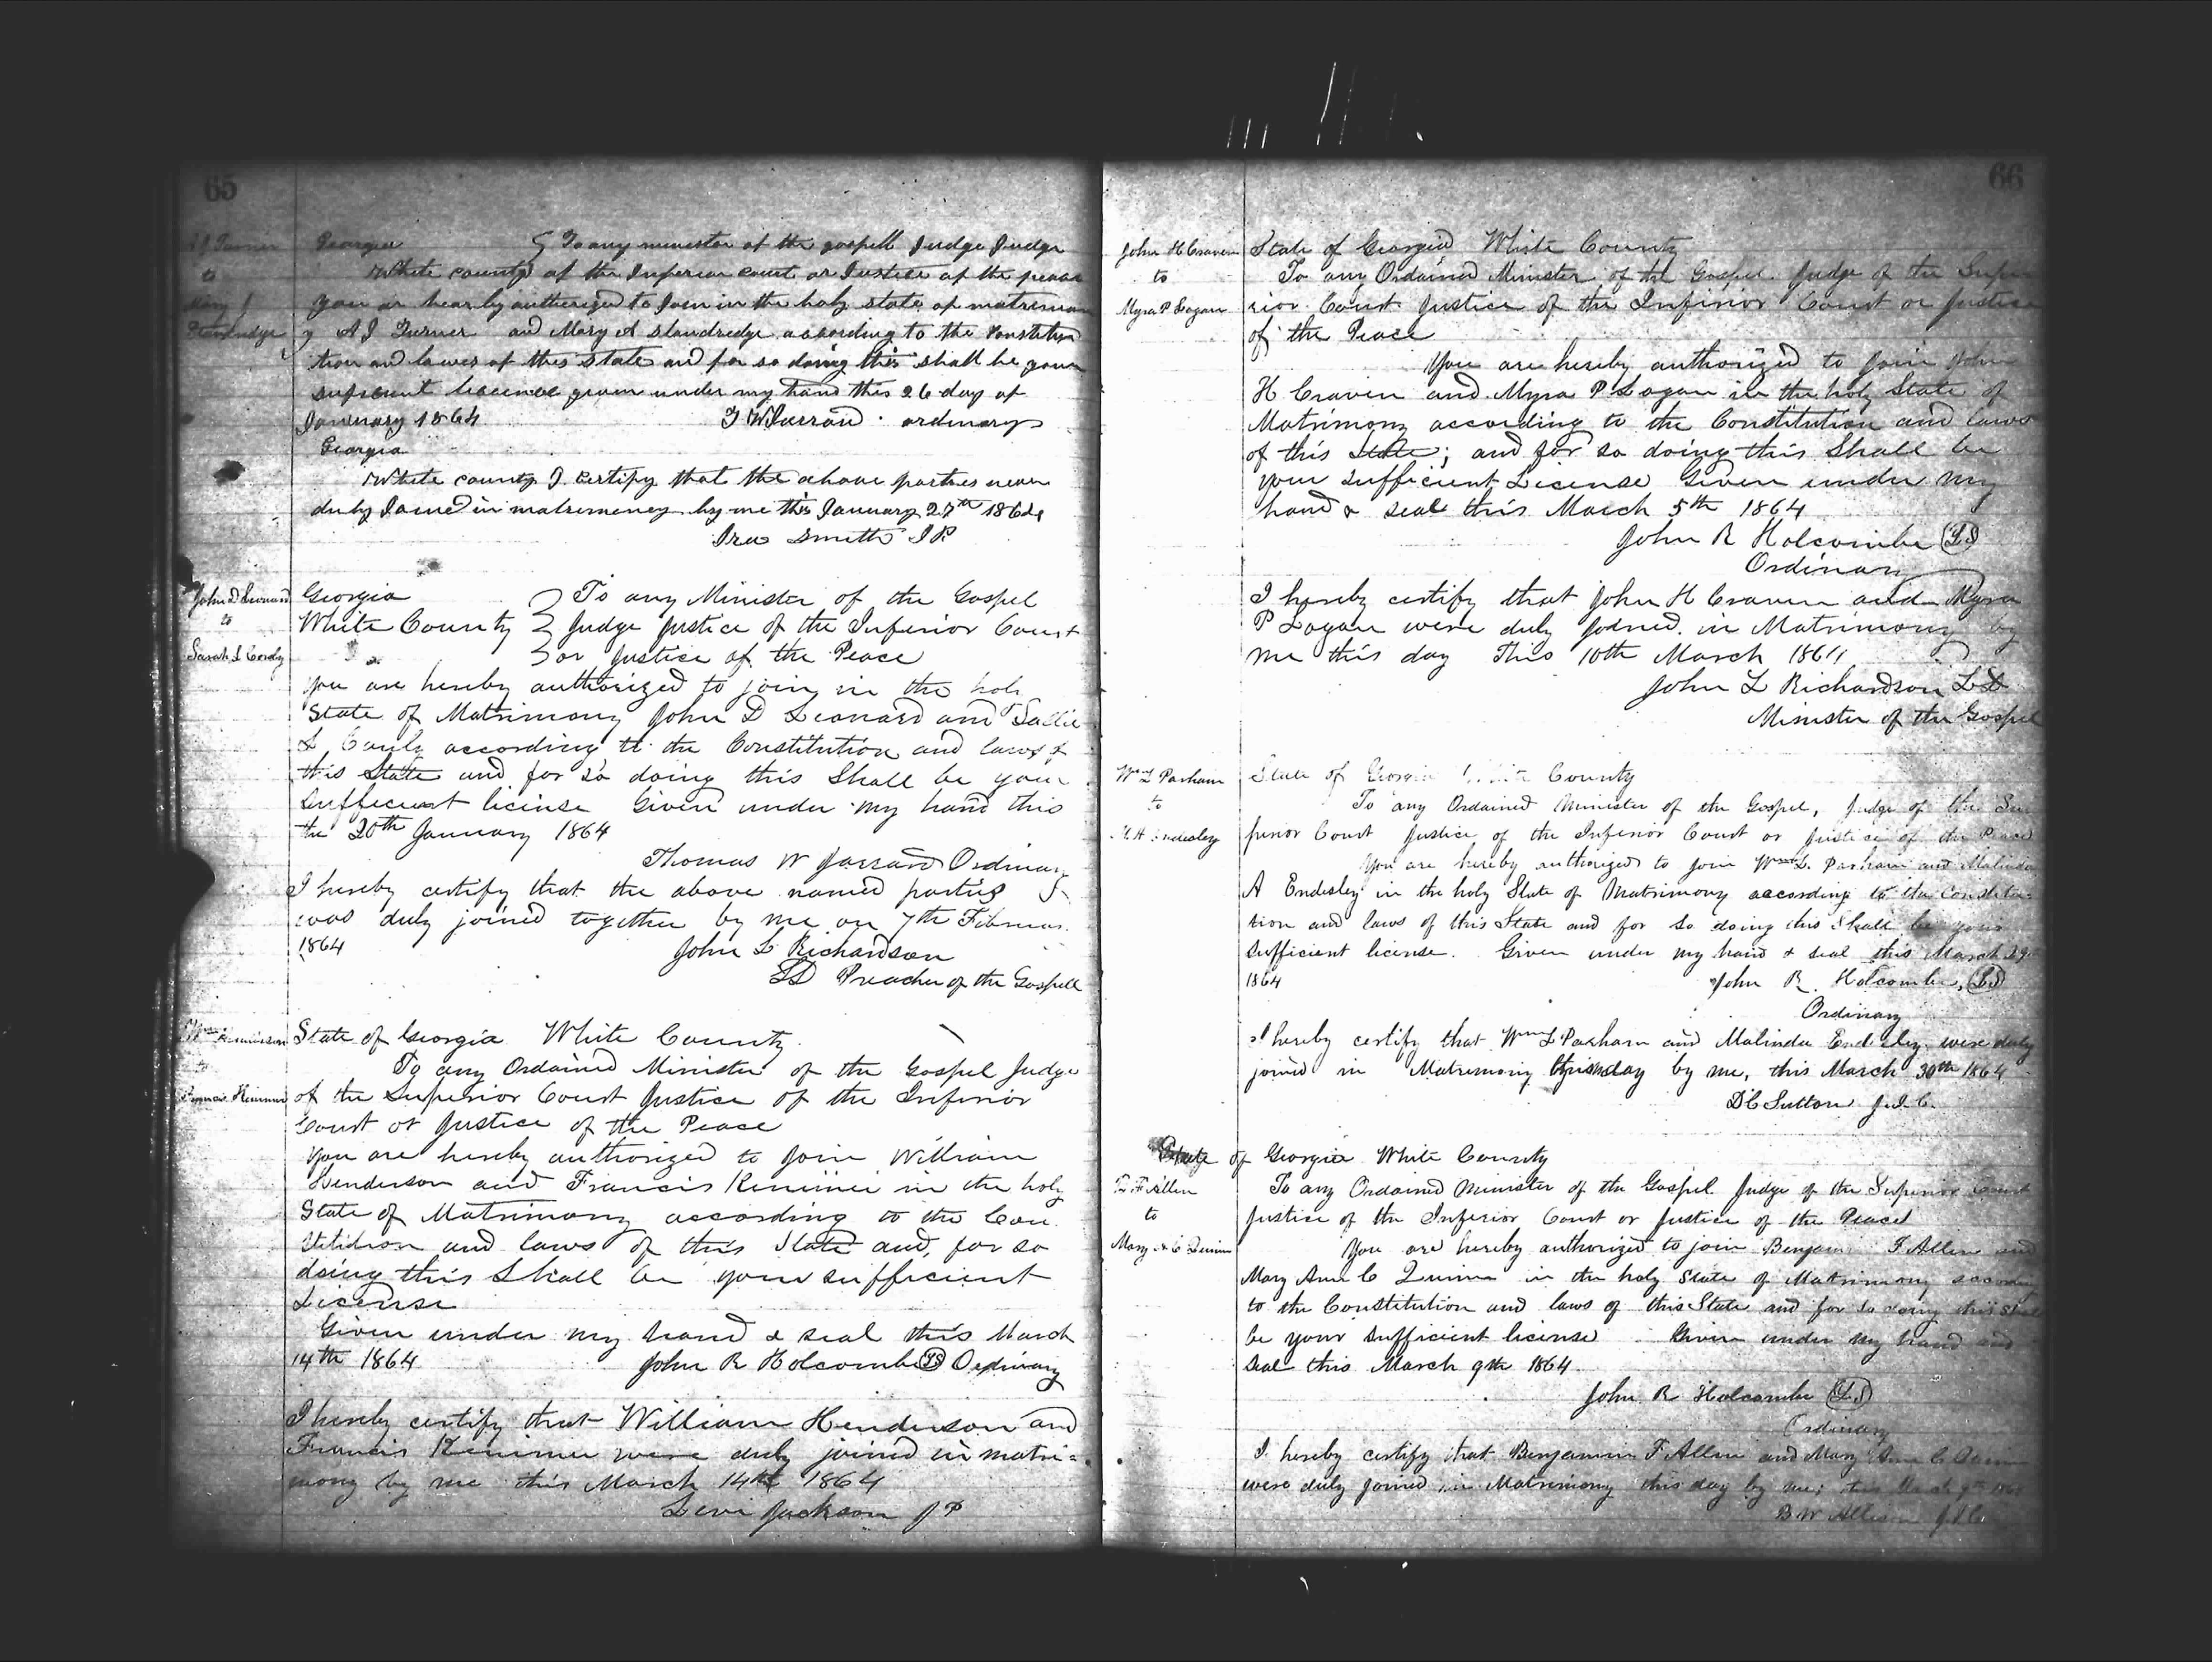 65
A J Turner
to
Mary A
Standridge
Georgia } To any minister of the gospell Judge Judge
White county of the Inferior court or Justice of the peace
you ar hearby authorized to Join in the holy state of matrimon
y A J Turner and Mary A Standredge according to the Constitu
tion and lawes of this state and for so doing this shall be your
suficient licence given under my hand this 26 day of
January 1864 T W Jarrard ordinary
Georgia
White county I certify that the above parties were
duly Joined in matremoney by me this January 27th 1864
Ira Smith J P
John D Leonard
to
Sarah L
Georgia } To any Minister of the Gospel
White County } Judge Justice of the Inferior Court
} or Justice of the Peace
You are hereby authorized to join in the holy
State of Matrimony John D Leonard and Sallie
L according to the Constitution and laws of
this State and for so doing this Shall be your
sufficient license Given under my hand this
the 20th January 1864
Thomas W Jarrard Ordinary
I hereby certify that the above named parties
was duly joined together by me on 7th Februar
1864 John L Richardson
LD Preacher of the Gospell
Wm Henderson
to
Francis Kenimer
State of Georgia White County
To any Ordained Minister of the Gospel Judge
of the Superior Court Justice of the Inferior
Court or Justice of the Peace
You are hereby authorized to join William
Henderson and Francis Kenimer in the holy
State of Matrimony according to the Con
stitution and laws of this State and, for so
doing this Shall be your sufficient
License
Given under my hand & seal this March
14th 1864 John R Holcombe LS Ordinary
I hereby certify that William Henderson and
Francis Kenimer were duly joined in matri-
mony by me this March 14th 1864
Levi Jackson J P
66
John H Craven
to
Myra P Logan
State of Georgia White County
To any Ordained Minister of the Gospel. Judge of the Supe
rior Court Justice of the Inferior Court or Justice
of the Peace
You are hereby authorized to join John
H Craven and Myra P Logan in the holy State of
Matrimony according to the Constitution and laws
of this State; and for so doing this Shall be
your sufficient License Given under my
hand & seal this March 5th 1864
John R Holcombe LS
Ordinary
I hereby certify that John H Craven and Myra
P Logan were duly joined in Matrimony by
me this day This 10th March 1864
John L Richardson LD
Minister of the Gospel
Wm L Parham
to
M. A. Endesley
State of Georgia White County
To any Ordained Minister of the Gospel, Judge of the Su
perior Court Justice of the Inferior Court or Justice of the Peace
You are hereby authorized to join Wm L. Parham and Malinda
A Endesley in the holy State of Matrimony according to the Constitu-
tion and laws of this State and for so doing this Shall be your
sufficient license. Given under my hand & seal this March 29
1864 John R. Holcombe, LS
Ordinary
I hereby certify that Wm L Parham and Malinda Endesley were duly
joined in Matrimony this day by me, this March 30th 1864
D C Sutton J.I.C.
State of Georgia White County
B F Allen
to
Mary A C Quinn
To any Ordained Minister of the Gospel Judge of the Superior Court
Justice of the Inferior Court or Justice of the Peace
You are hereby authorized to join Benjamin F Allen and
Mary Ann C Quinn in the holy State of Matrimony according
to the Constitution and laws of this State and for so doing this Shall
be your sufficient license Given under my hand and
seal this March 9th 1864.
John R Holcombe L.S
Ordinary
I hereby certify that Benjamin F Allen and Mary Ann C Quinn
were duly joined in Matrimony this day by me; this March 9th 1864
B W Allison J I C